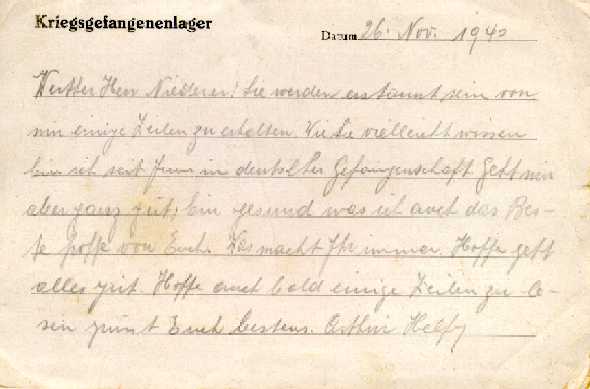 Kriegsgefangenenlager
Datum 26. Nov. 1940
Werther Herr Niederer! Sie werden erstaunt sein von
mir einige Zeilen zu erhalten. Wie Sie vielleicht wissen
bin ich seit Juni in deutscher Gefangenschaft Geht mir
aber ganz gut; bin gesund was ich auch das Bes-
te hoffe von Euch. Was macht Ihr immer. Hoffe geht
alles gut. Hoffe auch bald einige Zeilen zu le-
sen grüst Euch bestens. Arthur Helfy